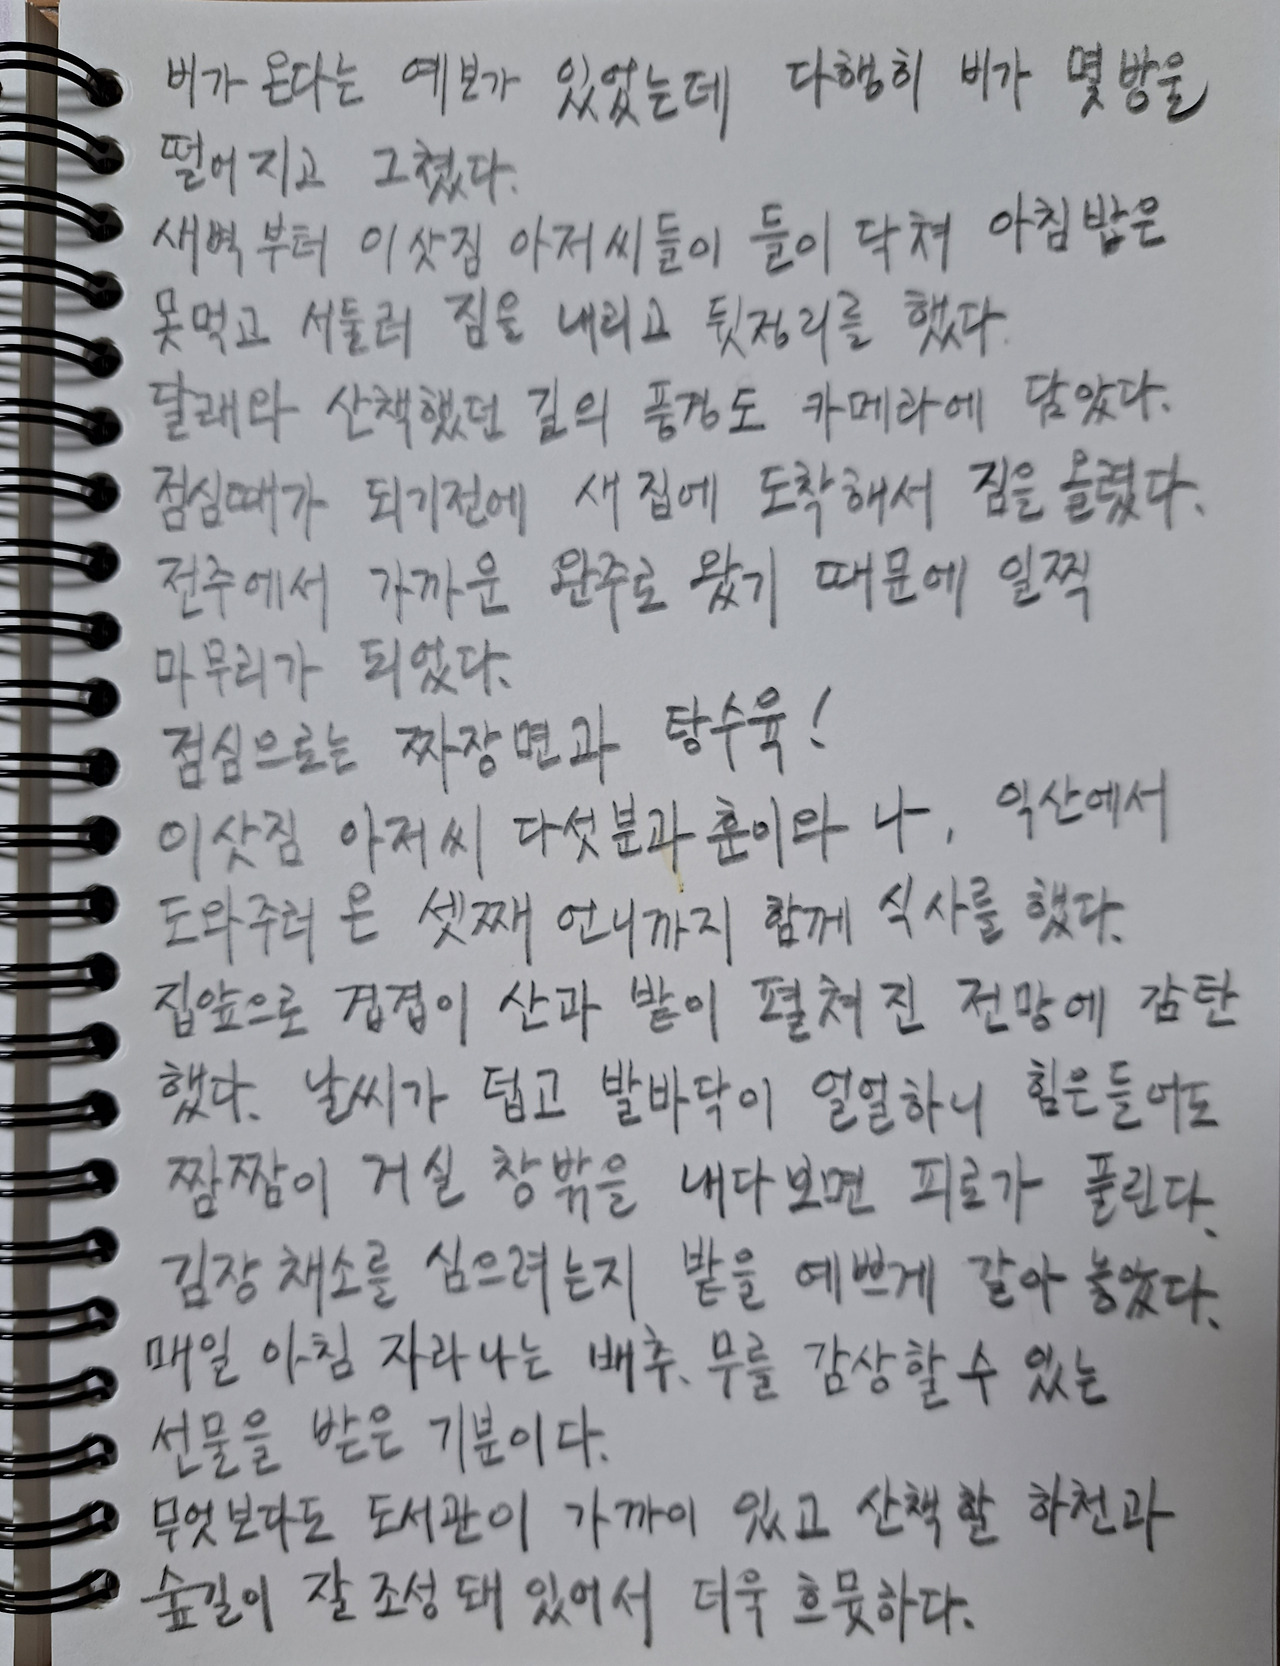 비가 온다는 예보가 있었는데 다행히 비가 몇방울
떨어지고 그쳤다.
새벽부터 이삿짐 아저씨들이 들이닥쳐 아침밥은
못먹고 서둘러 짐을 내리고 뒷정리를 했다.
달래와 산책했던 길의 풍경도 카메라에 담았다.
점심때가 되기전에 새집에 도착해서 짐을 올렸다.
전주에서 가까운 완주로 왔기 때문에 일찍
마무리가 되었다.
점심으로는 짜장면과 탕수육!
이삿짐 아저씨 다섯분과 훈이와 나, 익산에서
도와주러 온 셋째 언니까지 함께 식사를 했다.
집앞으로 겹겹이 산과 밭이 펼쳐진 전망에 감탄
했다. 날씨가 덥고 발바닥이 얼얼하니 힘은들어도
짬짬이 거실 창밖을 내다보면 피로가 풀린다.
김장채소를 심으려는지 밭을 예쁘게 갈아 놓았다.
매일 아침 자라나는 배추, 무를 감상할 수 있는
선물을 받은 기분이다.
무엇보다도 도서관이 가까이 있고 산책할 하천과
숲길이 잘 조성돼 있어서 더욱 흐뭇하다.